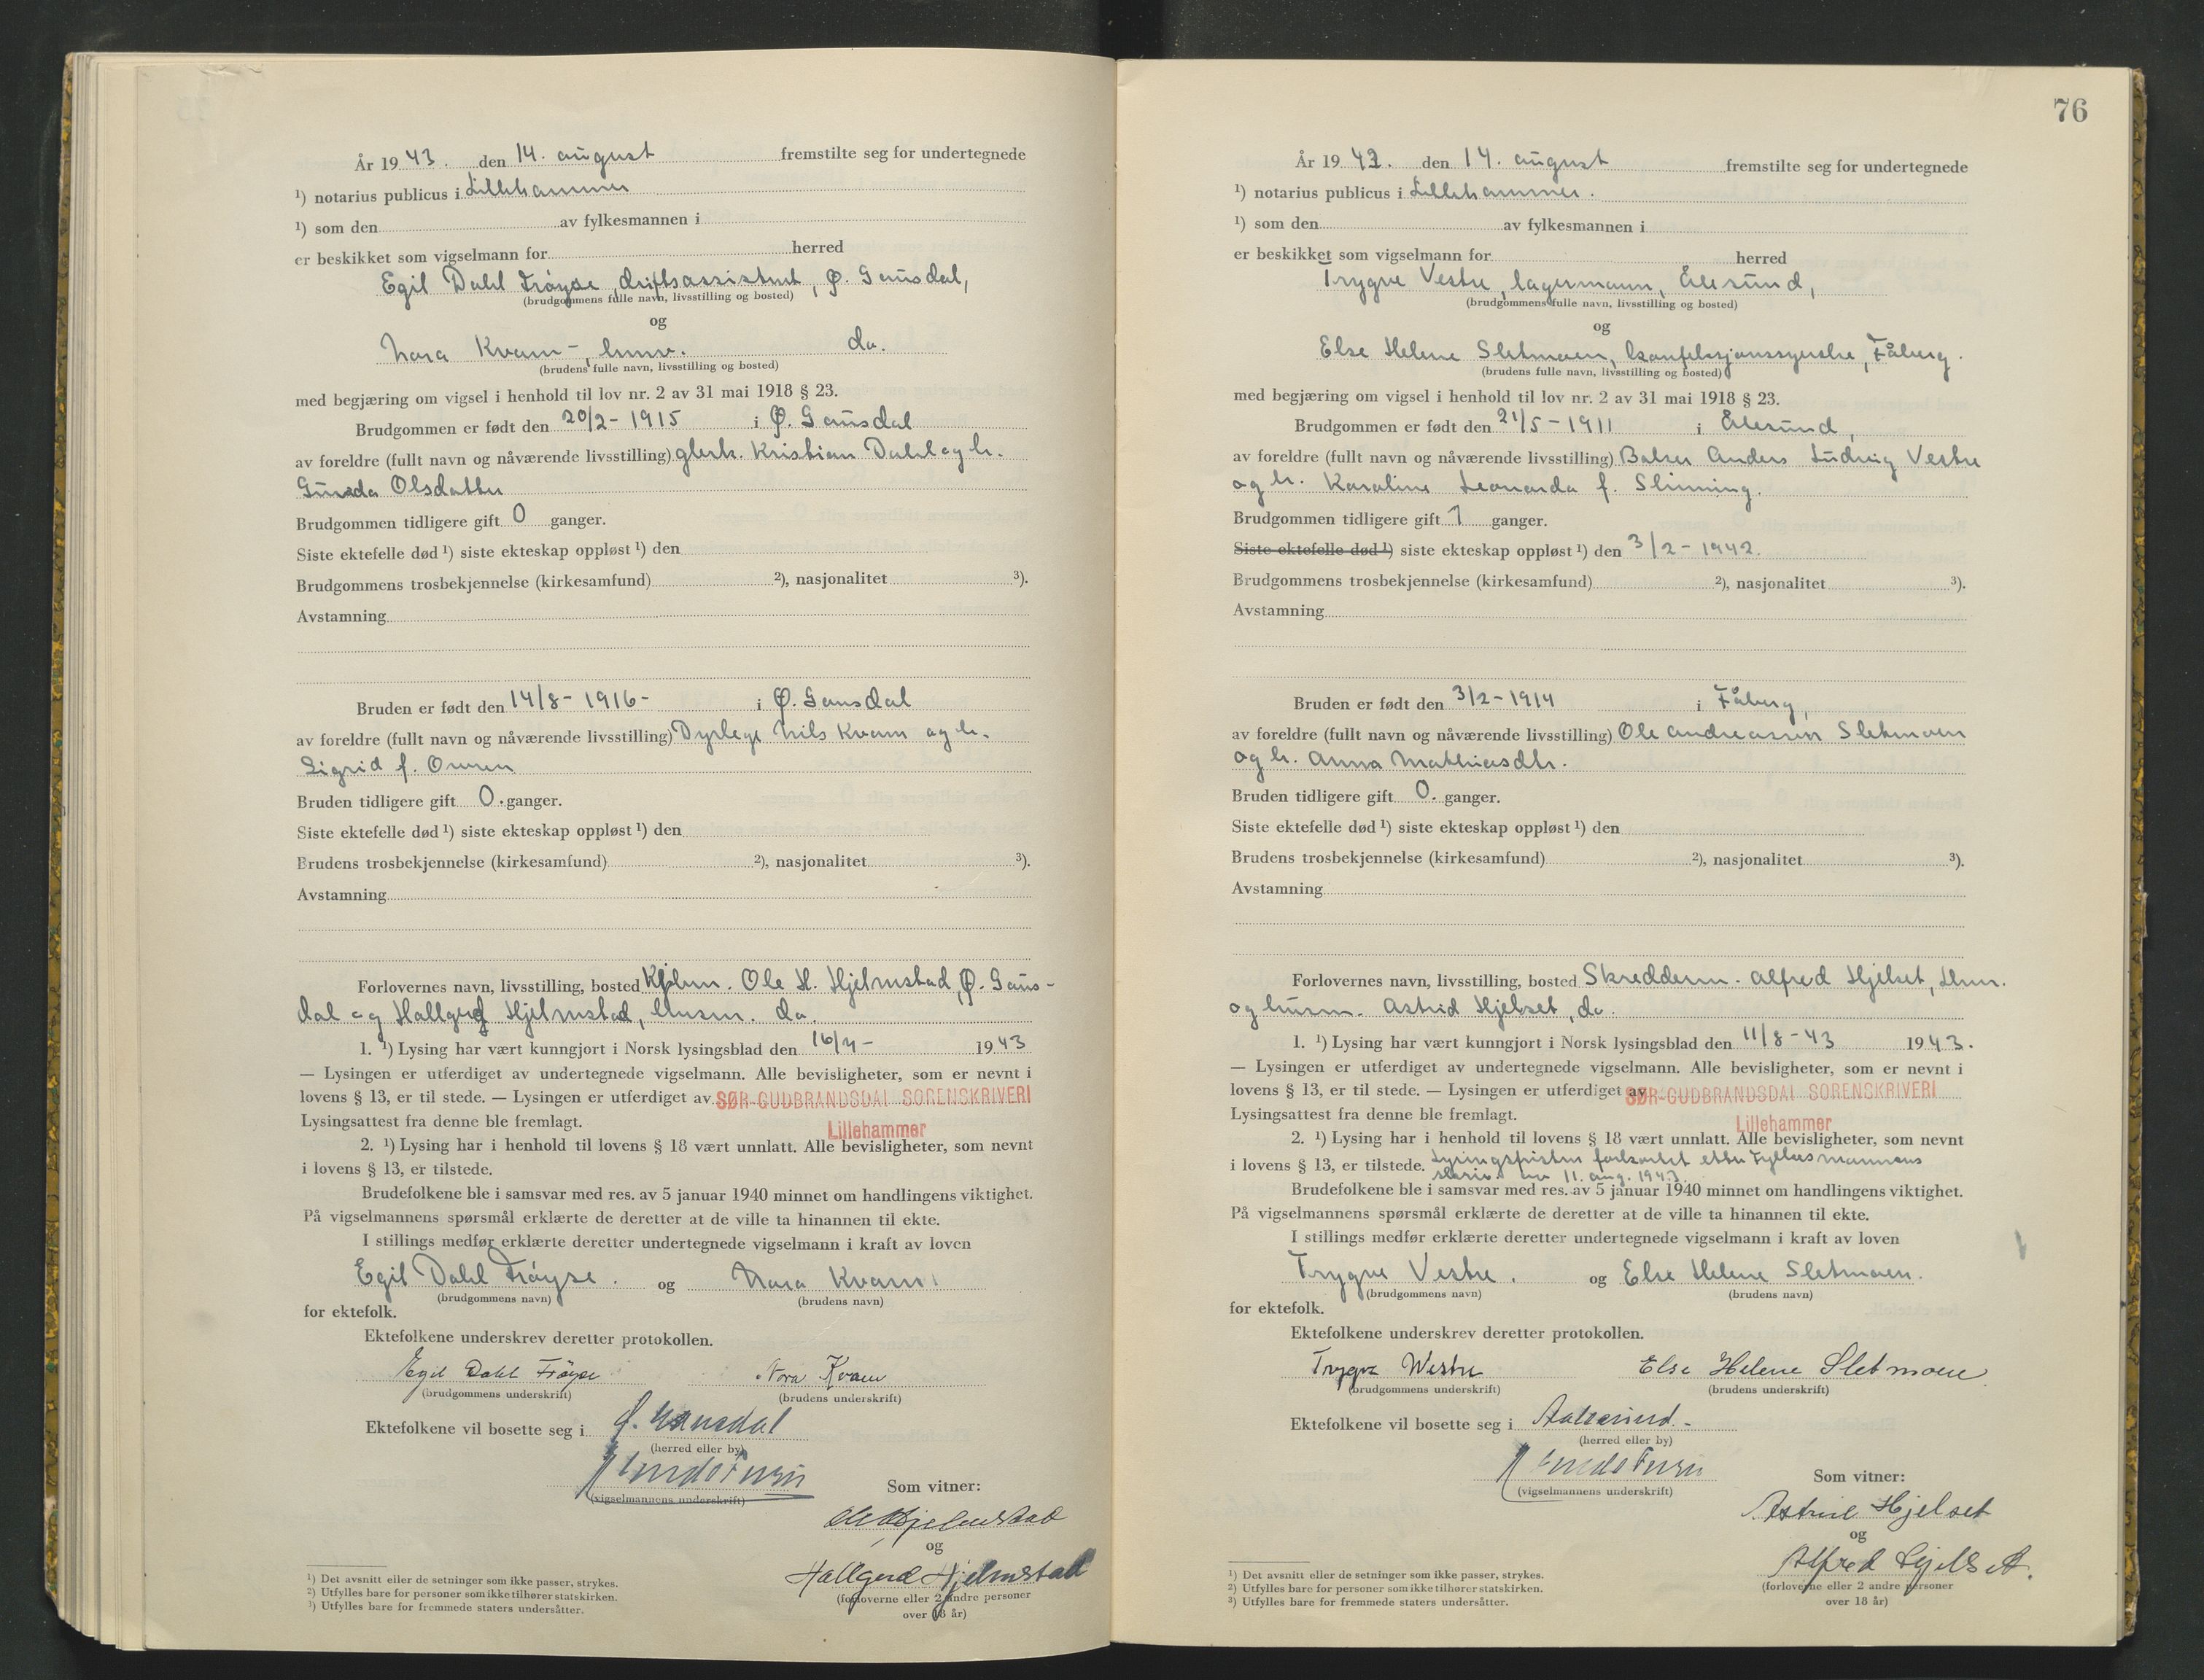 År 19 43. den 14. august fremstilte seg for undertegnede
1) notarius publicus i Lillehammer
1) som den av fylkesmannen i
er beskikket som vigselmann for herred
Egil Dahl Frøyse, driftsassistent, Ø. Gausdal,
(brudgommens fulle navn, livsstilling og bosted)
og
Nora Kvam -, husv. do.
(brudens fulle navn, livsstilling og bosted)
med begjæring om vigsel i henhold til lov nr. 2 av 31 mai 1918 § 23.
Brudgommen er født den 20/2 - 1915 i Ø. Gausdal
av foreldre (fullt navn og nåværende livsstilling) Kristian Dahl og h.
Olsdatter
Brudgommen tidligere gift 0 ganger.
Siste ektefelle død 1) siste ekteskap oppløst 1) den
Brudgommens trosbekjennelse (kirkesamfund) 2), nasjonalitet 3).
Avstamning
Bruden er født den 14/8 - 1916 - i Ø. Gausdal
av foreldre (fullt navn og nåværende livsstilling) Dyrlege Nils Kvam og h.
Sigrid f. Owren
Bruden tidligere gift 0. ganger.
Siste ektefelle død 1) siste ekteskap oppløst 1) den
Brudens trosbekjennelse (kirkesamfund) 2), nasjonalitet 3).
Avstamning
Forlovernes navn, livsstilling, bosted Kjøbm. Ole H. Hjelmstad, Ø. Gaus-
dal og Hallgerd Hjelmstad, husm. do.
1. 1) Lysing har vært kunngjort i Norsk lysingsblad den 1943
— Lysingen er utferdiget av undertegnede vigselmann. Alle bevisligheter, som er nevnt i
lovens § 13, er til stede. — Lysingen er utferdiget av SØR-GUDBRANDSDAL SORENSKRIVERI
Lysingsattest fra denne ble fremlagt.
Lillehammer
2. 1) Lysing har i henhold til lovens § 18 vært unnlatt. Alle bevisligheter, som nevnt
i lovens § 13, er tilstede.
Brudefolkene ble i samsvar med res. av 5 januar 1940 minnet om handlingens viktighet.
På vigselmannens spørsmål erklærte de deretter at de ville ta hinannen til ekte.
I stillings medfør erklærte deretter undertegnede vigselmann i kraft av loven
Egil Dahl Frøyse. og Nora Kvam
(brudgommens navn) (brudens navn)
for ektefolk.
Ektefolkene underskrev deretter protokollen.
Egil Dahl Frøyse Nora Kvam
(brudgommens underskrift) (brudens underskrift)
Ektefolkene vil bosette seg i Ø. Gausdal
(herred eller by)
(vigselmannens underskrift)
Som vitner:
Hjelmstad
og
Hallgerd Hjelmstad
(forloverne eller 2 andre personer
over 18 år)
1) Det avsnitt eller de setninger som ikke passer, strykes.
2) Utfylles bare for personer som ikke tilhører statskirken.
3) Utfylles bare for fremmede staters undersåtter.
76
År 19 43. den 14. august fremstilte seg for undertegnede
1) notarius publicus i Lillehammer.
1) som den av fylkesmannen i
er beskikket som vigselmann for herred
Trygve Vestre, lagermann, Ålesund,
(brudgommens fulle navn, livsstilling og bosted)
og
Else Helene Sletmoen, konfeksjonssyerske, Fåberg.
(brudens fulle navn, livsstilling og bosted)
med begjæring om vigsel i henhold til lov nr. 2 av 31 mai 1918 § 23.
Brudgommen er født den 21/5 - 1911 i Ålesund,
av foreldre (fullt navn og nåværende livsstilling) Anders Ludvig Vestre
og h. Karoline Leonarda f. Slinning.
Brudgommen tidligere gift 1 ganger.
Siste ektefelle død 1) siste ekteskap oppløst 1) den 3/2 - 1942.
Brudgommens trosbekjennelse (kirkesamfund) 2), nasjonalitet 3).
Avstamning
Bruden er født den 3/2 - 1914 i Fåberg,
av foreldre (fullt navn og nåværende livsstilling) Ole Andreassen Sletmoen
og h. Anna Mathiasdtr.
Bruden tidligere gift 0. ganger.
Siste ektefelle død 1) siste ekteskap oppløst 1) den
Brudens trosbekjennelse (kirkesamfund) 2), nasjonalitet 3).
Avstamning
Forlovernes navn, livsstilling, bosted Skredderm. Alfred Hjelset, Lhmr.
og husm. Astrid Hjelset, do.
1. 1) Lysing har vært kunngjort i Norsk lysingsblad den 11/8 - 43 1943.
— Lysingen er utferdiget av undertegnede vigselmann. Alle bevisligheter, som er nevnt i
lovens § 13, er til stede. — Lysingen er utferdiget av SØR-GUDBRANDSDAL SORENSKRIVERI
Lysingsattest fra denne ble fremlagt.
Lillehammer
2. 1) Lysing har i henhold til lovens § 18 vært unnlatt. Alle bevisligheter, som nevnt
i lovens § 13, er tilstede. Lysingsfristen forkortet etter Fylkesmannens
skriv. av 11. aug. 1943.
Brudefolkene ble i samsvar med res. av 5 januar 1940 minnet om handlingens viktighet.
På vigselmannens spørsmål erklærte de deretter at de ville ta hinannen til ekte.
I stillings medfør erklærte deretter undertegnede vigselmann i kraft av loven
Trygve Vestre. og Else Helene Sletmoen.
(brudgommens navn) (brudens navn)
for ektefolk.
Ektefolkene underskrev deretter protokollen.
Trygve Westre Else Helene Sletmoen
(brudgommens underskrift) (brudens underskrift)
Ektefolkene vil bosette seg i Aalesund.-
(herred eller by)
(vigselmannens underskrift)
Som vitner:
Astrid Hjelset
og
Alfred Hjelset.
(forloverne eller 2 andre personer
over 18 år)
1) Det avsnitt eller de setninger som ikke passer, strykes.
2) Utfylles bare for personer som ikke tilhører statskirken.
3) Utfylles bare for fremmede staters undersåtter.